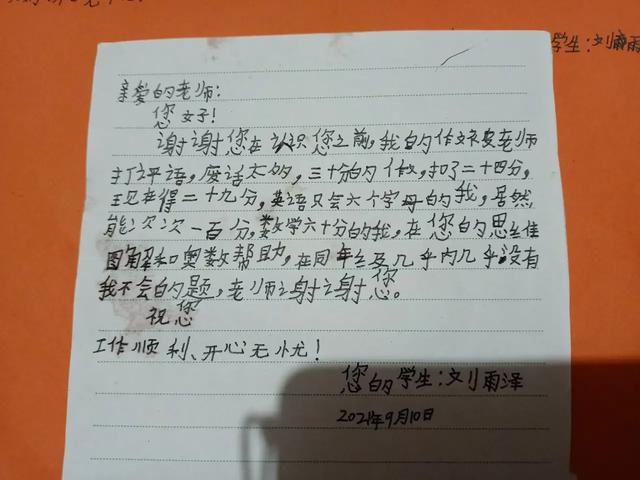 学生：刘雨
亲爱的老师：
您好！
谢谢您在认识您之前，我的作文被老师
打评语，废话太多，三十分的作，扣了二十四分，
现在得二十九分，英语只会六个字母的我，居然
能次次一百分，数学六十分的我，在您的思维
图解和奥数帮助，在同年级及几乎内几乎没有
我不会的题，老师谢谢您。
祝您
工作顺利、开心无忧！
您的学生：刘雨泽
2021年9月10日